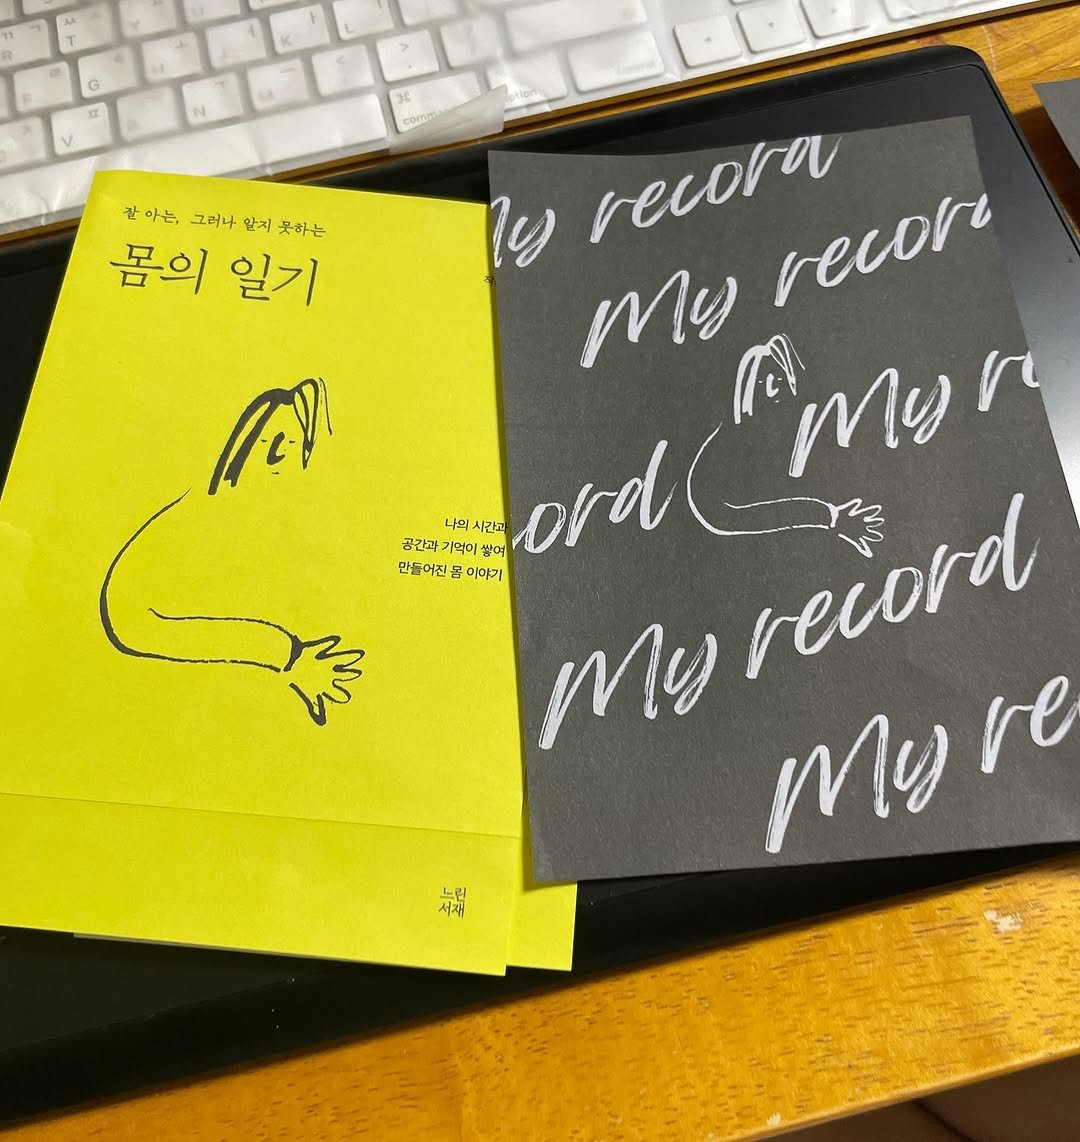 ㅆ
T
G
ㅊ
ㅏ
K
ㅣ
L
ㅍ
V
ㅜ
N
ㅡ
M
>
.
?
/
⌘
command
option
◀
잘 아는, 그러나 알지 못하는
몸의 일기
나의 시간과
공간과 기억이 쌓여
만들어진 몸 이야기
느린
서재
My record
My record
My re
ord
My record
My re